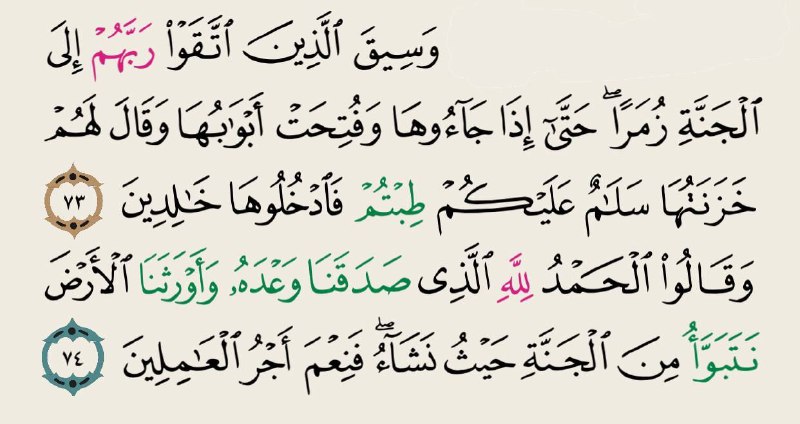 وَسِيقَ ٱلَّذِينَ ٱتَّقَوۡاْ رَبَّهُمۡ إِلَى
ٱلۡجَنَّةِ زُمَرًاۖ حَتَّىٰٓ إِذَا جَآءُوهَا وَفُتِحَتۡ أَبۡوَٰبُهَا وَقَالَ لَهُمۡ
خَزَنَتُهَا سَلَٰمٌ عَلَيۡكُمۡ طِبۡتُمۡ فَٱدۡخُلُوهَا خَٰلِدِينَ ٧٣
وَقَالُواْ ٱلۡحَمۡدُ لِلَّهِ ٱلَّذِى صَدَقَنَا وَعۡدَهُۥ وَأَوۡرَثَنَا ٱلۡأَرۡضَ
نَتَبَوَّأُ مِنَ ٱلۡجَنَّةِ حَيۡثُ نَشَآءُۖ فَنِعۡمَ أَجۡرُ ٱلۡعَٰمِلِينَ ٧٤